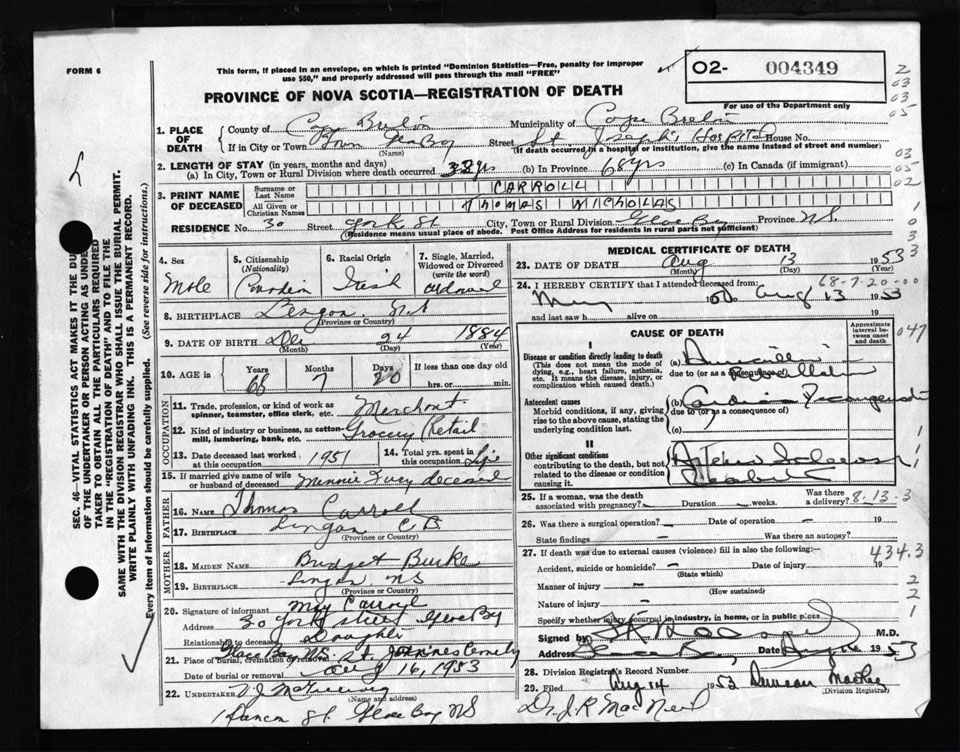 FORM 6
This form, if placed in an envelope, on which is printed "Dominion Statistics—Free, penalty for improper
use $50," and properly addressed will pass through the mail "FREE"
02- 004349
PROVINCE OF NOVA SCOTIA—REGISTRATION OF DEATH
For use of the Department only
2
03
03
05
03
05
02
1
0
3
3
1. PLACE OF DEATH
County of Cape Breton Municipality of Cape Breton
If in City or Town Town Glace Bay Street St. Joseph's Hospital House No.
(Name) (If death occurred in a hospital or institution, give the name instead of street and number)
2. LENGTH OF STAY (in years, months and days)
(a) In City, Town or Rural Division where death occurred yrs (b) In Province 68 yrs (c) In Canada (if immigrant)
3. PRINT NAME OF DECEASED
Surname or Last Name CARROLL
All Given or Christian Names THOMAS NICHOLAS
RESIDENCE No. 30 Street York St City, Town or Rural Division Glace Bay Province N.S.
(Residence means usual place of abode. Post Office Address for residents in rural parts not sufficient)
4. Sex
Male
5. Citizenship
(Nationality)
Canadian
6. Racial Origin
Irish
7. Single, Married,
Widowed or Divorced
(write the word)
widowed
8. BIRTHPLACE Lingan N.S.
(Province or Country)
9. DATE OF BIRTH Dec 24 1884
(Month) (Day) (Year)
10. AGE in Years Months Days If less than one day old
68 7 20 hrs. or min.
OCCUPATION
11. Trade, profession, or kind of work as
spinner, teamster, office clerk, etc. Merchant
12. Kind of industry or business, as cotton-
mill, lumbering, bank, etc. Grocery Retail
13. Date deceased last worked
at this occupation 1951
14. Total yrs. spent in
this occupation Life
15. If married give name of wife
or husband of deceased Minnie deceased
FATHER
16. NAME Thomas Carroll
17. BIRTHPLACE Lingan C B
(Province or Country)
MOTHER
18. MAIDEN NAME Bridget Burke
19. BIRTHPLACE Lingan NS
(Province or Country)
20. Signature of informant May Carroll
Address 30 York Street Glace Bay
Relationship to deceased Daughter
21. Place of burial, cremation or removal Glace Bay, N.S. St. Cemetery
Date of burial or removal Aug 16, 1953
22. UNDERTAKER
(Name and address)
St Glace Bay NS
MEDICAL CERTIFICATE OF DEATH
23. DATE OF DEATH Aug 13 1953
(Month) (Day) (Year)
3
24. I HEREBY CERTIFY that I attended deceased from 68-7-20-00
Aug 13 1953
and last saw h alive on 19
CAUSE OF DEATH
Approximate
interval between
onset and death
047
I
Disease or condition directly leading to death
(This does not mean the mode of
dying, e.g., heart failure, asthenia,
etc. It means the disease, injury, or
complication which caused death.)
(a) Auricular
due to (or as a consequence of) Fibrillation
Antecedent causes
Morbid conditions, if any, giving
rise to the above cause, stating the
underlying condition last.
(b) Cardiac
due to (or as a consequence of)
(c)
II
Other significant conditions
contributing to the death, but not
related to the disease or condition
causing it.
25. If a woman, was the death
associated with pregnancy? Duration weeks. Was there a delivery? 8-13-3
26. Was there a surgical operation? — Date of operation — 19
State findings — Was there an autopsy?
27. If death was due to external causes (violence) fill in also the following:— 434.3
Accident, suicide or homicide? — Date of injury 19
(State which)
Manner of injury —
(How sustained)
Nature of injury —
Specify whether injury occurred in industry, in home, or in public place
2
2
1
Signed by M.D.
Address Glace Bay Date Aug 1953
28. Division Registrar's Record Number
29. Filed Aug 14 1953 Duncan
(Division Registrar)
Dr. J. R MacNeil
SEC. 46—VITAL STATISTICS ACT MAKES IT THE DUTY
OF THE UNDERTAKER OR PERSON ACTING AS UNDER-
TAKER TO OBTAIN ALL THE PARTICULARS REQUIRED
IN THE "REGISTRATION OF DEATH" AND TO FILE THE
SAME WITH THE DIVISION REGISTRAR WHO SHALL ISSUE THE BURIAL PERMIT.
WRITE PLAINLY WITH UNFADING INK. THIS IS A PERMANENT RECORD.
Every item of information should be carefully supplied. (See reverse side for instructions.)